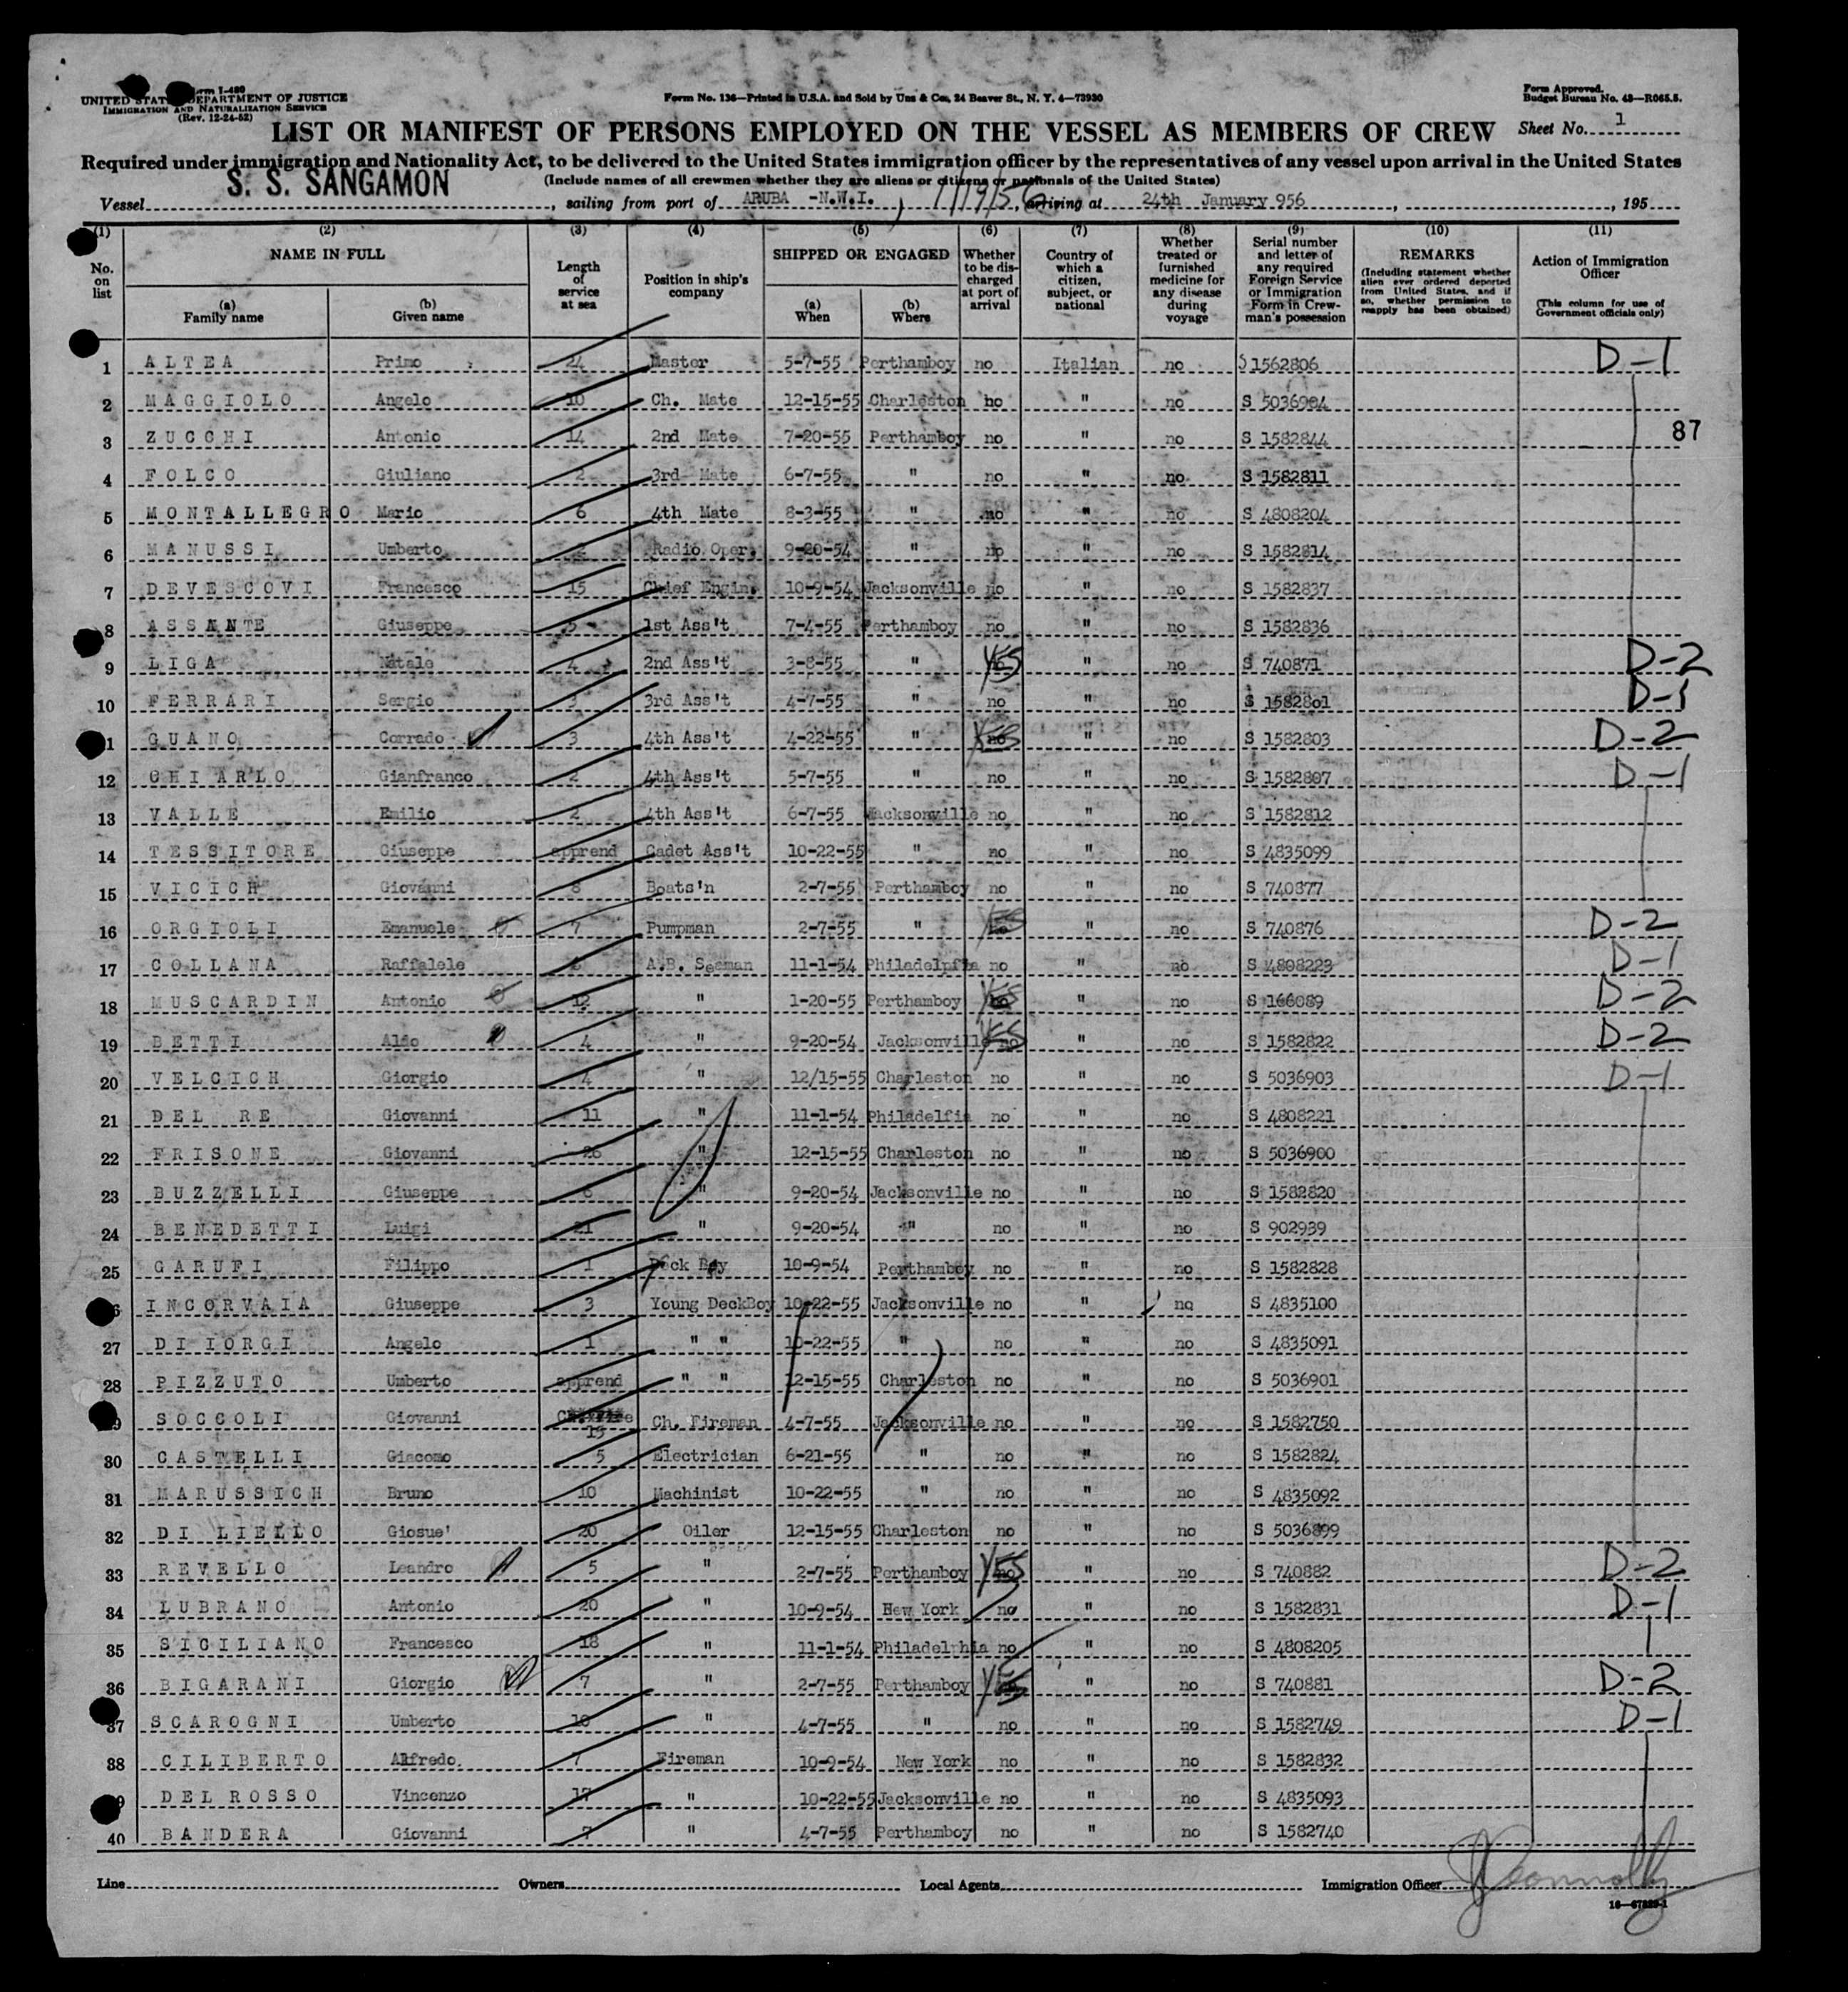 Form I-480
UNITED STATES DEPARTMENT OF JUSTICE
IMMIGRATION AND NATURALIZATION SERVICE
(Rev. 12-24-52)
Form No. 136—Printed in U.S.A. and Sold by Unz & Co., 24 Beaver St., N. Y. 4—73930
Form Approved.
Budget Bureau No. 43—R065.5.
LIST OR MANIFEST OF PERSONS EMPLOYED ON THE VESSEL AS MEMBERS OF CREW Sheet No. 1
Required under immigration and Nationality Act, to be delivered to the United States immigration officer by the representatives of any vessel upon arrival in the United States
(Include names of all crewmen whether they are aliens or citizens or nationals of the United States)
Vessel S. S. SANGAMON, sailing from port of ARUBA -N.W.I. , 1/19/56, arriving at 24th January 956, , 195
(1) (2) (3) (4) (5) (6) (7) (8) (9) (10) (11)
No. on list
NAME IN FULL
(a) Family name
(b) Given name
Length of service at sea
Position in ship's company
SHIPPED OR ENGAGED
(a) When
(b) Where
Whether to be discharged at port of arrival
Country of which a citizen, subject, or national
Whether treated or furnished medicine for any disease during voyage
Serial number and letter of any required Foreign Service or Immigration Form in Crewman's possession
REMARKS
(Including statement whether alien ever ordered deported from United States, and if so, whether permission to reapply has been obtained)
Action of Immigration Officer
(This column for use of Government officials only)
1 ALTEA Primo 24 Master 5-7-55 Perthamboy no Italian no S 1562806 D-1
2 MAGGIOLO Angelo 10 Ch. Mate 12-15-55 Charleston no " no S 5036904
87
3 ZUCCHI Antonio 14 2nd Mate 7-20-55 Perthamboy no " no S 1582844
4 FOLCO Giuliano 2 3rd Mate 6-7-55 " no " no S 1582811
5 MONTALLEGRO Mario 6 4th Mate 8-3-55 " no " no S 4808204
6 MANUSSI Umberto Radio Oper. 9-20-54 " no " no S 1582814
7 DEVESCOVI Francesco 15 Chief Engin. 10-9-54 Jacksonville no " no S 1582837
8 ASSANTE Giuseppe 5 1st Ass't 7-4-55 Perthamboy no " no S 1582836
9 LIGA Natale 4 2nd Ass't 3-8-55 " YES " no S 740871 D-2
10 FERRARI Sergio 3 3rd Ass't 4-7-55 " no " no S 1582801 D-1
11 GUANO Corrado 3 4th Ass't 4-22-55 " no YES " no S 1582803 D-2
12 CHIARLO Gianfranco 2 4th Ass't 5-7-55 " no " no S 1582807 D-1
13 VALLE Emilio 2 4th Ass't 6-7-55 Jacksonville no " no S 1582812
14 TESSITORE Giuseppe apprend Cadet Ass't 10-22-55 " no " no S 4835099
15 VICICH Giovanni 8 Boats'n 2-7-55 Perthamboy no " no S 740877
16 ORGIOLI Emanuele 7 Pumpman 2-7-55 " YES " no S 740876 D-2
17 COLLANA Raffalele A.B. Seeman 11-1-54 Philadelpfia no " no S 4808223 D-1
18 MUSCARDIN Antonio 12 " 1-20-55 Perthamboy no YES " no S 166089 D-2
19 BETTI Aldo 4 " 9-20-54 Jacksonville no YES " no S 1582822 D-2
20 VELCICH Giorgio 4 " 12/15-55 Charleston no " no S 5036903 D-1
21 DEL RE Giovanni 11 " 11-1-54 Philadelfia no " no S 4808221
22 FRISONE Giovanni 26 " 12-15-55 Charleston no " no S 5036900
23 BUZZELLI Giuseppe 6 " 9-20-54 Jacksonville no " no S 1582820
24 BENEDETTI Luigi 21 " 9-20-54 " no " no S 902939
25 GARUFI Filippo 1 Deck Boy 10-9-54 Perthamboy no " no S 1582828
26 INCORVAIA Giuseppe 3 Young DeckBoy 10-22-55 Jacksonville no " no S 4835100
27 DI IORGI Angelo 1 " " 10-22-55 " no " no S 4835091
28 PIZZUTO Umberto apprend " " 12-15-55 Charleston no " no S 5036901
29 SOCCOLI Giovanni 15 Ch. Fireman 4-7-55 Jacksonville no " no S 1582750
30 CASTELLI Giacomo 5 Electrician 6-21-55 " no " no S 1582824
31 MARUSSICH Bruno 10 Machinist 10-22-55 " no " no S 4835092
32 DI LIELLO Giosue' 20 Oiler 12-15-55 Charleston no " no S 5036899
33 REVELLO Leandro 5 " 2-7-55 Perthamboy no YES " no S 740882 D-2
34 LUBRANO Antonio 20 " 10-9-54 New York no " no S 1582831 D-1
35 SICILIANO Francesco 18 " 11-1-54 Philadelphia no " no S 4808205
36 BIGARANI Giorgio 7 " 2-7-55 Perthamboy YES " no S 740881 D-2
37 SCAROGNI Umberto 10 " 4-7-55 " no " no S 1582749 D-1
38 CILIBERTO Alfredo. 7 Fireman 10-9-54 New York no " no S 1582832
39 DEL ROSSO Vincenzo 17 " 10-22-55 Jacksonville no " no S 4835093
40 BANDERA Giovanni 7 " 4-7-55 Perthamboy no " no S 1582740
Line Owners Local Agents Immigration Officer J Connolly